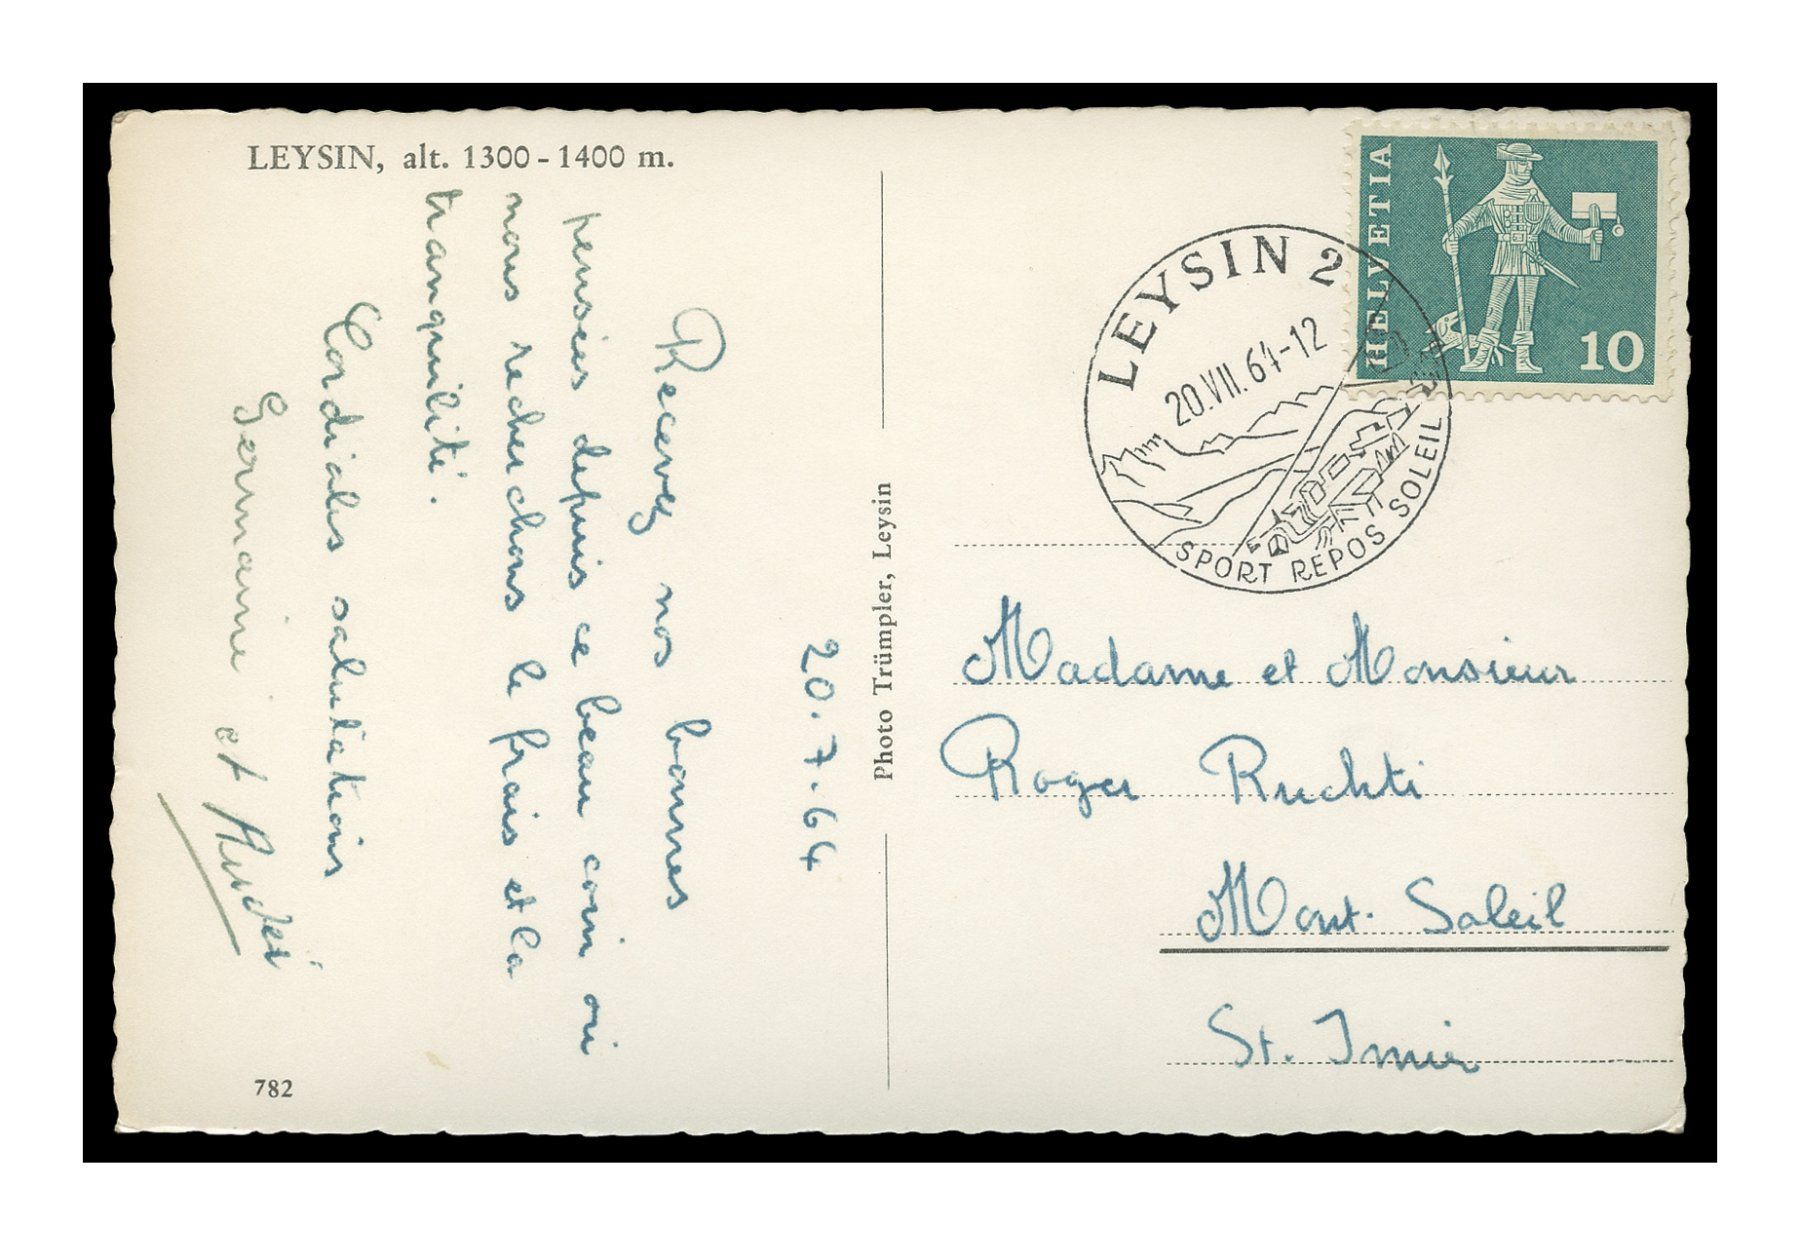 LEYSIN, alt. 1300 - 1400 m.
20.7.64
Recevez nos bonnes
pensées depuis ce beau coin où
nous recherchons le frais et la
tranquilité.
Cordiales salutations
Germaine et
782
Photo Trümpler, Leysin
HELVETIA
10
LEYSIN 2
20.VII.64-12
SPORT REPOS SOLEIL
Madame et Monsieur
Roger Ruchti
Mont-Soleil
St. Imier